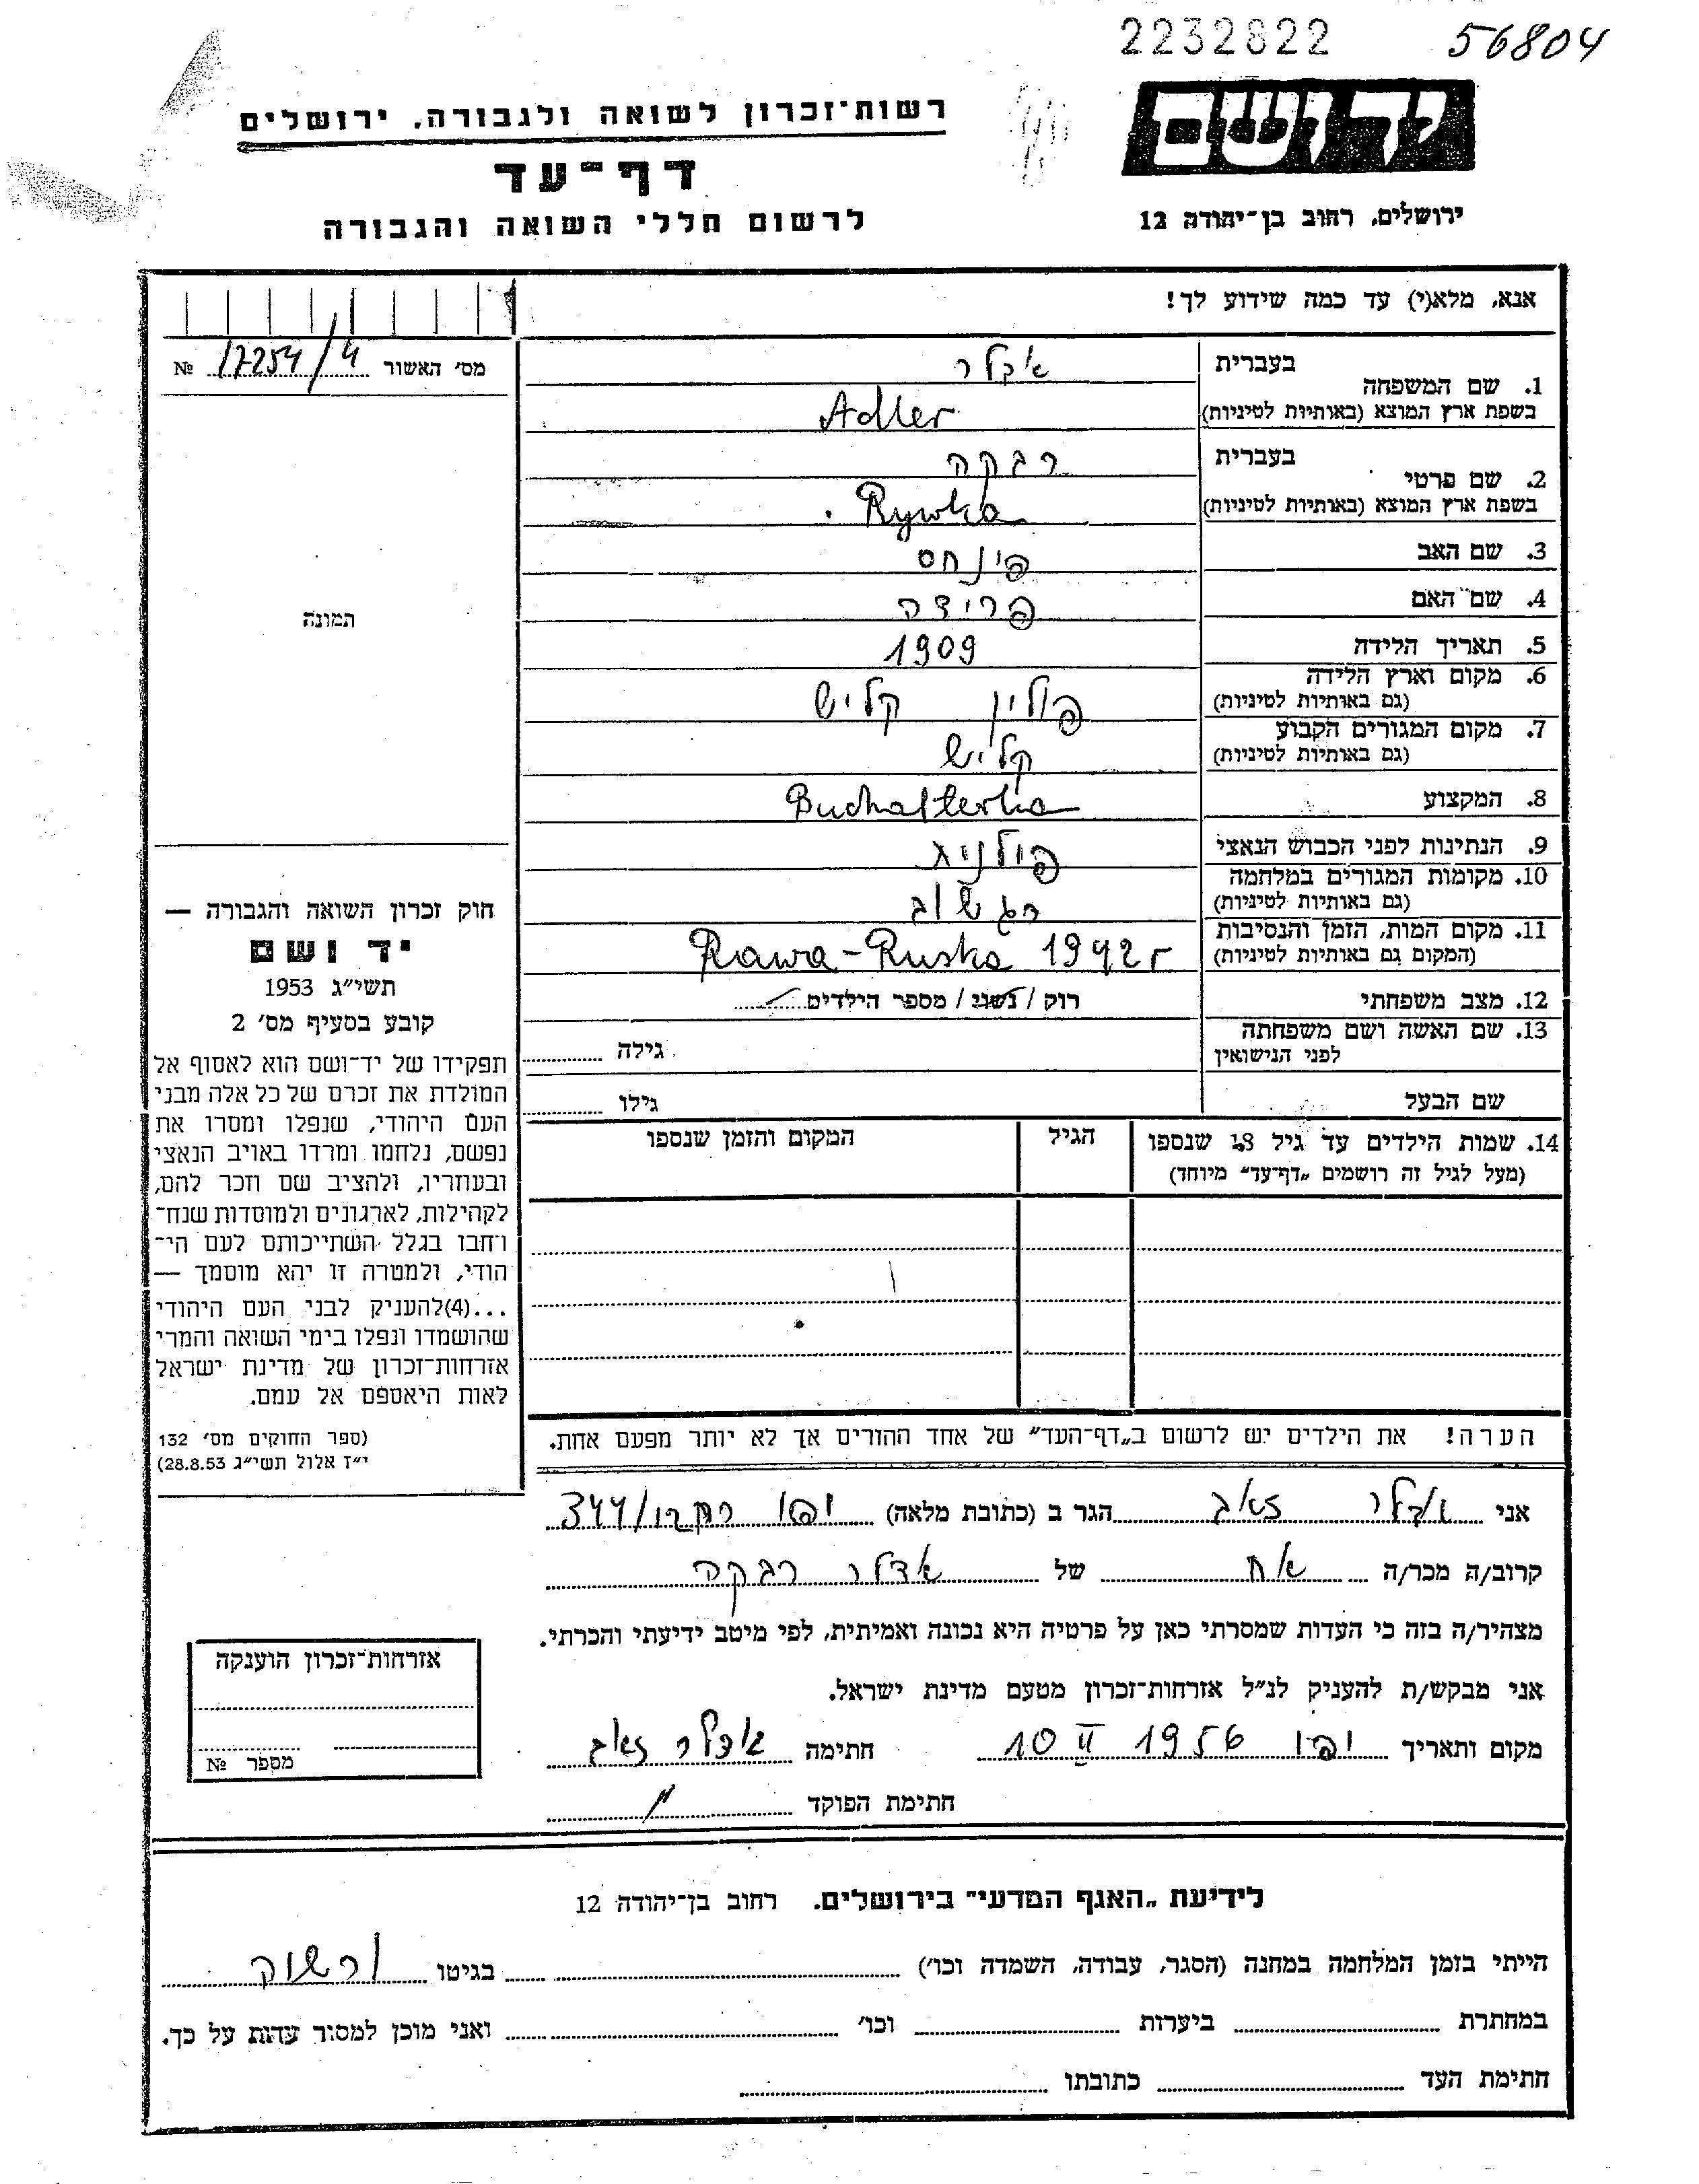 2232822 56804
יד ושם
רשות־זכרון לשואה ולגבורה, ירושלים
דף־עד
לרשום חללי השואה והגבורה
ירושלים, רחוב בן־יהודה 12
אנא, מלא(י) עד כמה שידוע לך!
מס׳ האשור 17254/4 №
1. שם המשפחה
בעברית אדלר
בשפת ארץ המוצא (באותיות לטיניות) Adler
2. שם פרטי
בעברית רבקה
בשפת ארץ המוצא (באותיות לטיניות) Rywka
3. שם האב פינחס
4. שם האם
5. תאריך הלידה 1909
6. מקום וארץ הלידה פולין קליש
(גם באותיות לטיניות)
7. מקום המגורים הקבוע קליש
(גם באותיות לטיניות)
8. המקצוע Buchalterka
9. הנתינות לפני הכבוש הנאצי פולנית
10. מקומות המגורים במלחמה
(גם באותיות לטיניות)
11. מקום המות, הזמן והנסיבות Rawa-Ruska 1942 r
(המקום גם באותיות לטיניות)
12. מצב משפחתי רוק / נשוי / מספר הילדים
13. שם האשה ושם משפחתה
לפני הנישואין גילה
שם הבעל גילו
14. שמות הילדים עד גיל 18 שנספו הגיל המקום והזמן שנספו
(מעל לגיל זה רושמים „דף־עד״ מיוחד)
הערה! את הילדים יש לרשום ב„דף־העד״ של אחד ההורים אך לא יותר מפעם אחת.
תמונה
חוק זכרון השואה והגבורה —
יד ושם
תשי״ג 1953
קובע בסעיף מס׳ 2
תפקידו של יד־ושם הוא לאסוף אל
המולדת את זכרם של כל אלה מבני
העם היהודי, שנפלו ומסרו את
נפשם, נלחמו ומרדו באויב הנאצי
ובעוזריו, ולהציב שם וזכר להם,
לקהילות, לארגונים ולמוסדות שנח־
רבו בגלל השתייכותם לעם הי־
הודי, ולמטרה זו יהא מוסמך —
...(4)להעניק לבני העם היהודי
שהושמדו ונפלו בימי השואה והמרי
אזרחות־זכרון של מדינת ישראל
לאות היאספם אל עמם.
(ספר החוקים מס׳ 132
י״ז אלול תשי״ג 28.8.53)
אני אדלר זאב הגר ב (כתובת מלאה) יפו 344/
קרוב/ה מכר/ה אח של אדלר רבקה
מצהיר/ה בזה כי העדות שמסרתי כאן על פרטיה היא נכונה ואמיתית, לפי מיטב ידיעתי והכרתי.
אני מבקש/ת להעניק לנ״ל אזרחות־זכרון מטעם מדינת ישראל.
מקום ותאריך יפו 10 II 1956 חתימה אדלר זאב
חתימת הפוקד
אזרחות־זכרון הוענקה
מספר №
לידיעת „האגף המדעי״ בירושלים. רחוב בן־יהודה 12
הייתי בזמן המלחמה במחנה (הסגר, עבודה, השמדה וכו׳) בגיטו ורשוק
במחתרת ביערות וכו׳ ואני מוכן למסור עדות על כך.
חתימת העד כתובתו